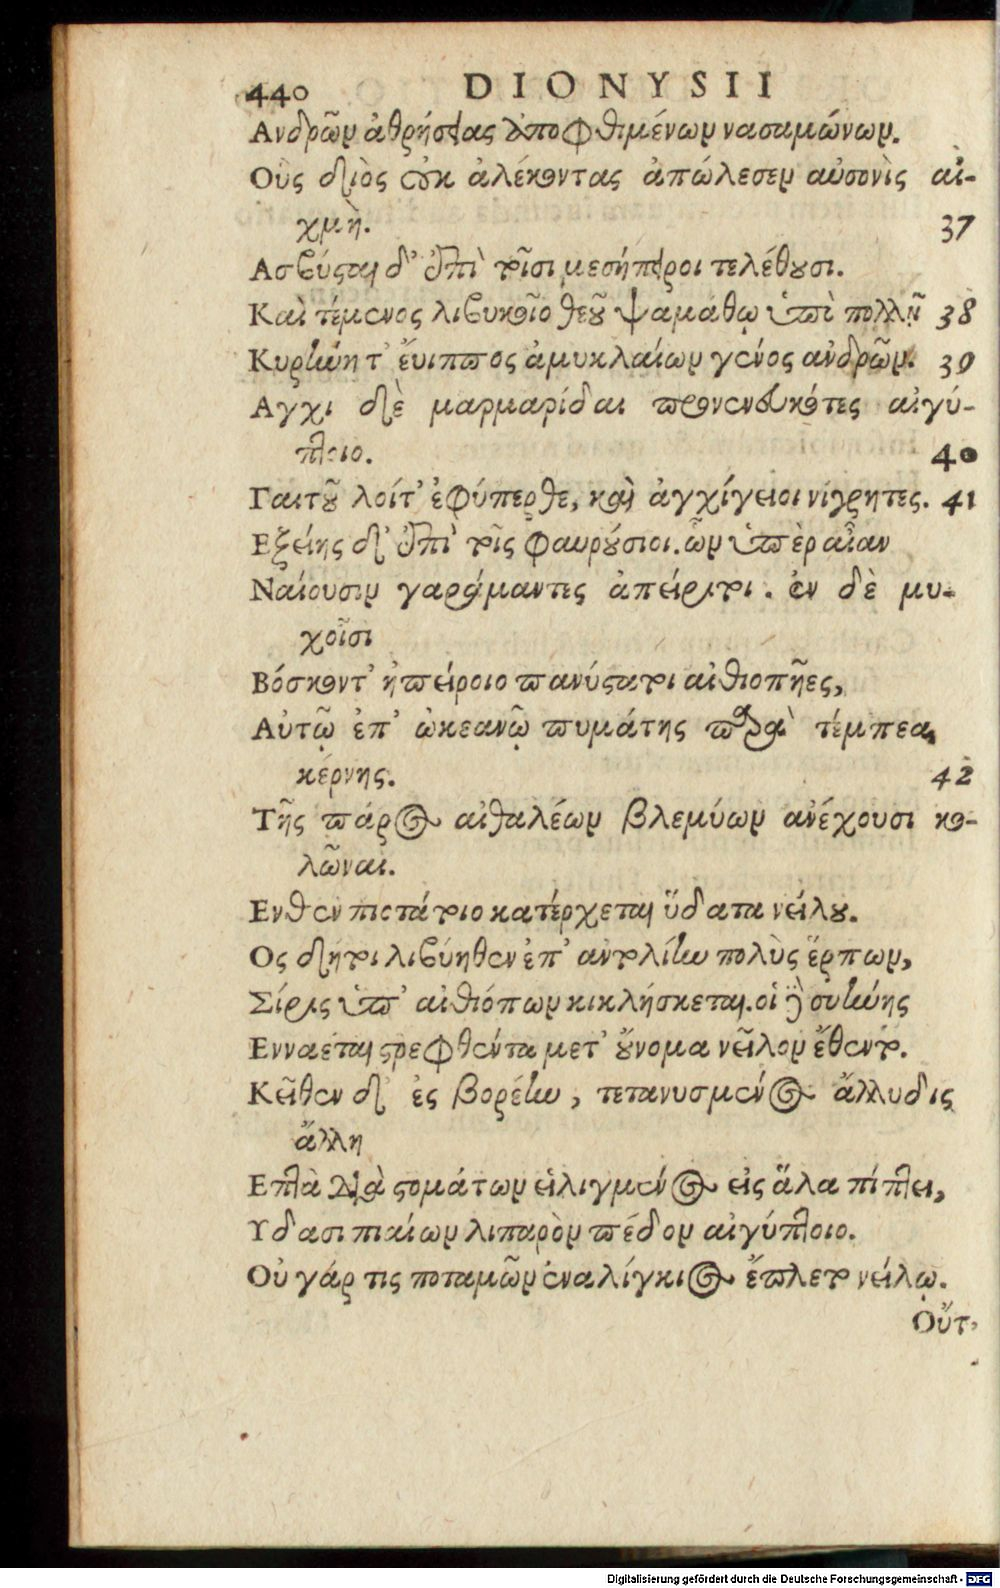 440 DIONYSII
Ανδρῶν ἀθρήσειας ἀποφθιμένων νασαμώνων.
Οὓς διὸς οὐκ ἀλέγοντας ἀπώλεσεν αὐσονὶς αἰ-
χμὴ. 37
Ασβύςαι δ' ἐπὶ τοῖσι μεσήπειροι τελέθουσι.
Καὶ τέμενος λιβυκοῖο θεοῦ ψαμάθῳ ὑπὸ πολλῇ 38
Κυρήνη τ' ἔυιππος ἀμυκλαίων γένος ἀνδρῶν. 39
Αγχι δὲ μαρμαρίδαι προνενευκότες αἰγύ-
πτοιο. 40
Γαιτοῦλοί τ' ἐφύπερθε, καὶ ἀγχίγειοι νίγρητες. 41
Εξείης δ' ἐπὶ τοῖς φαυρούσιοι. ὧν ὑπὲρ αἶαν
Ναίουσιν γαράμαντες ἀπείριτοι. ἐν δὲ μυ-
χοῖσι
Βόσκοντ' ἠπείροιο πανύςατοι αἰθιοπῆες,
Αὐτῷ ἐπ' ὠκεανῷ πυμάτης παρὰ τέμπεα
κέρνης. 42
Τῆς πάρος αἰθαλέων βλεμύων ἀνέχουσι κο-
λῶναι.
Ενθεν πιοτάτοιο κατέρχεται ὕδατα νείλου.
Ος δήτοι λιβύηθεν ἐπ' ἀντολίην πολὺς ἕρπων,
Σίρις ὑπ' αἰθιόπων κικλήσκεται. οἱ δὲ συήνης
Ενναέται ςρεφθέντα μετ' οὔνομα νεῖλον ἔθεντο.
Κεῖθεν δ' ἐς βορέην, τετανυσμένος ἄλλυδις
ἄλλη
Επτὰ διὰ ςομάτων εἱλιγμένος εἰς ἅλα πίπτει,
Υδασι πιαίων λιπαρὸν πέδον αἰγύπτοιο.
Οὐ γάρ τις ποταμῶν ἐναλίγκιος ἔπλετο νείλῳ.
Οὔτ'
Digitalisierung gefördert durch die Deutsche Forschungsgemeinschaft - DFG